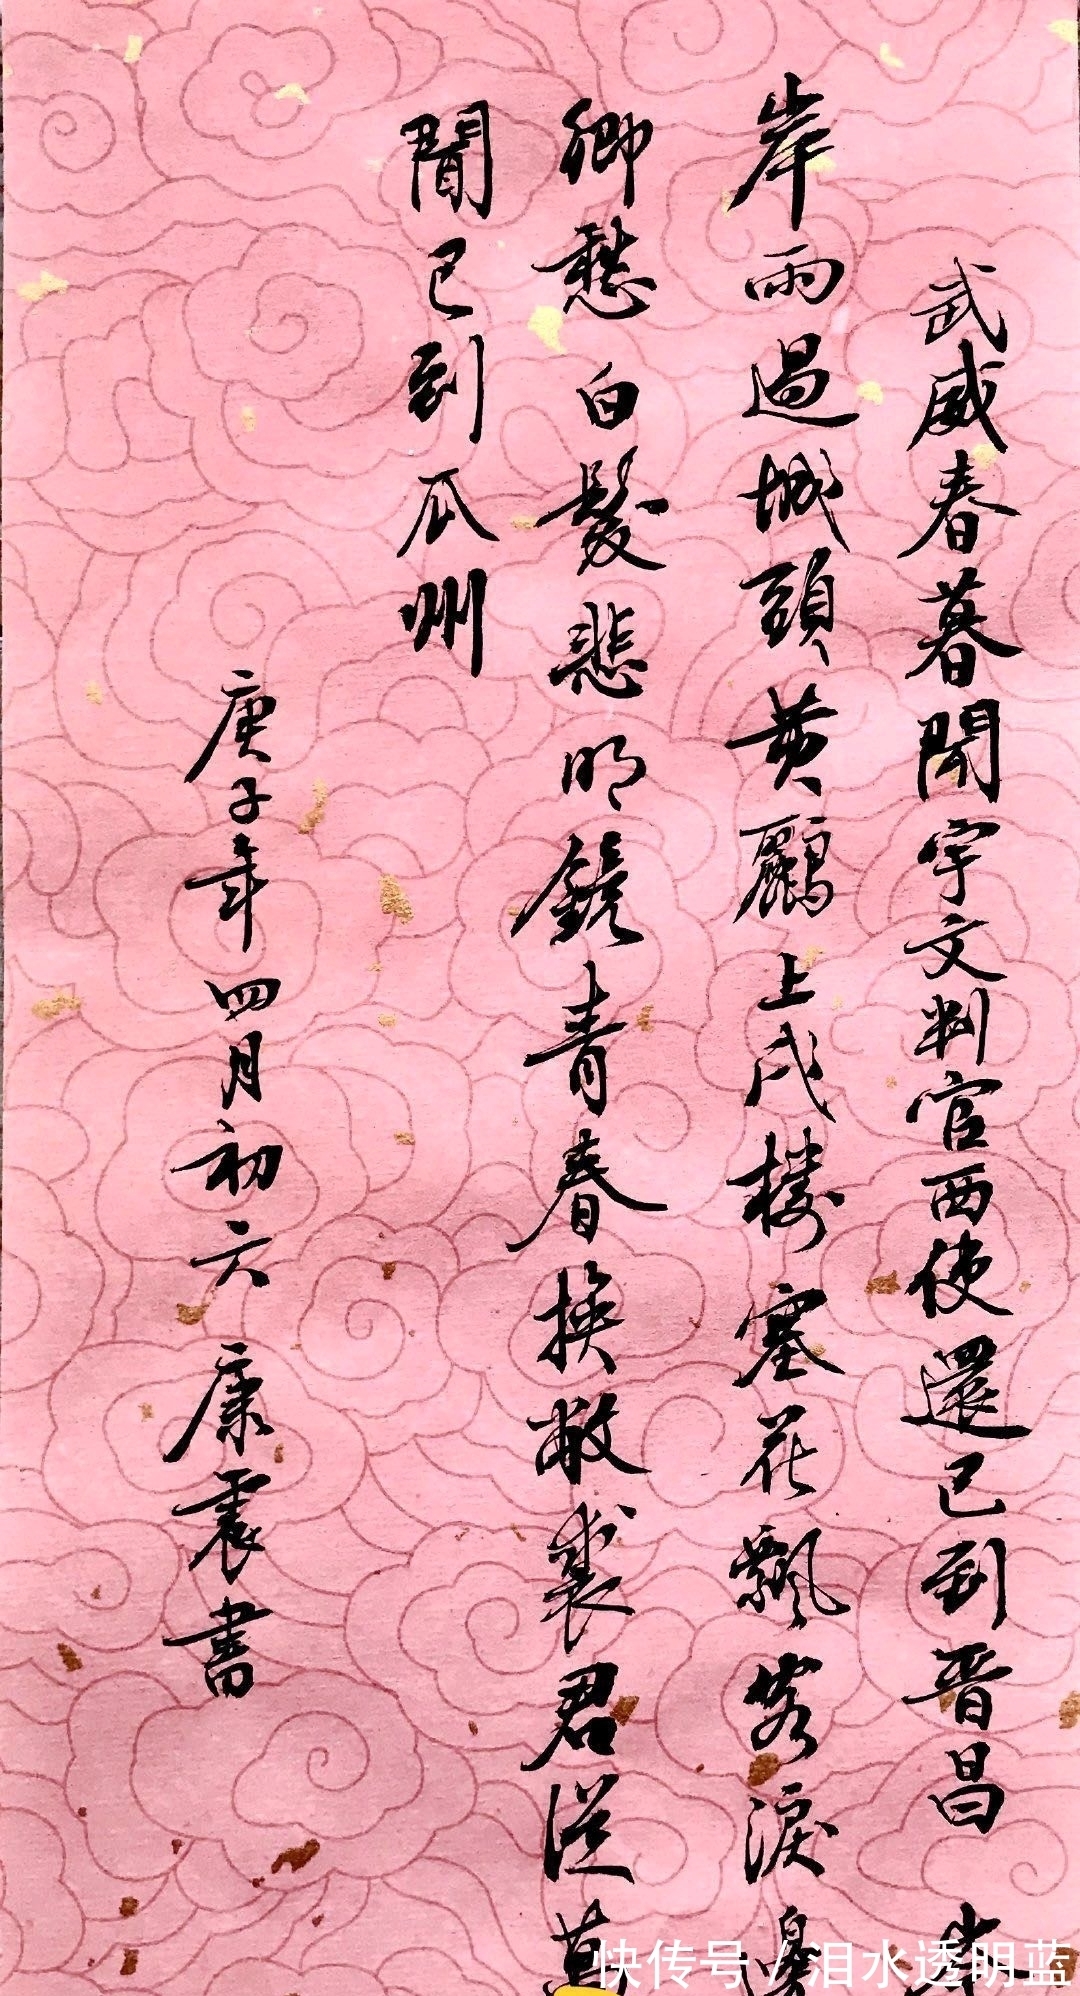 武威春暮聞宇文判官西使還已到晋昌
岸雨過城頭黄鸝上戍楼塞花飄客淚邊
鄉愁白髮悲明鏡青春換敝裘君從萬
聞已到瓜州
庚子年四月初六 康震書
快传号/泪水透明蓝